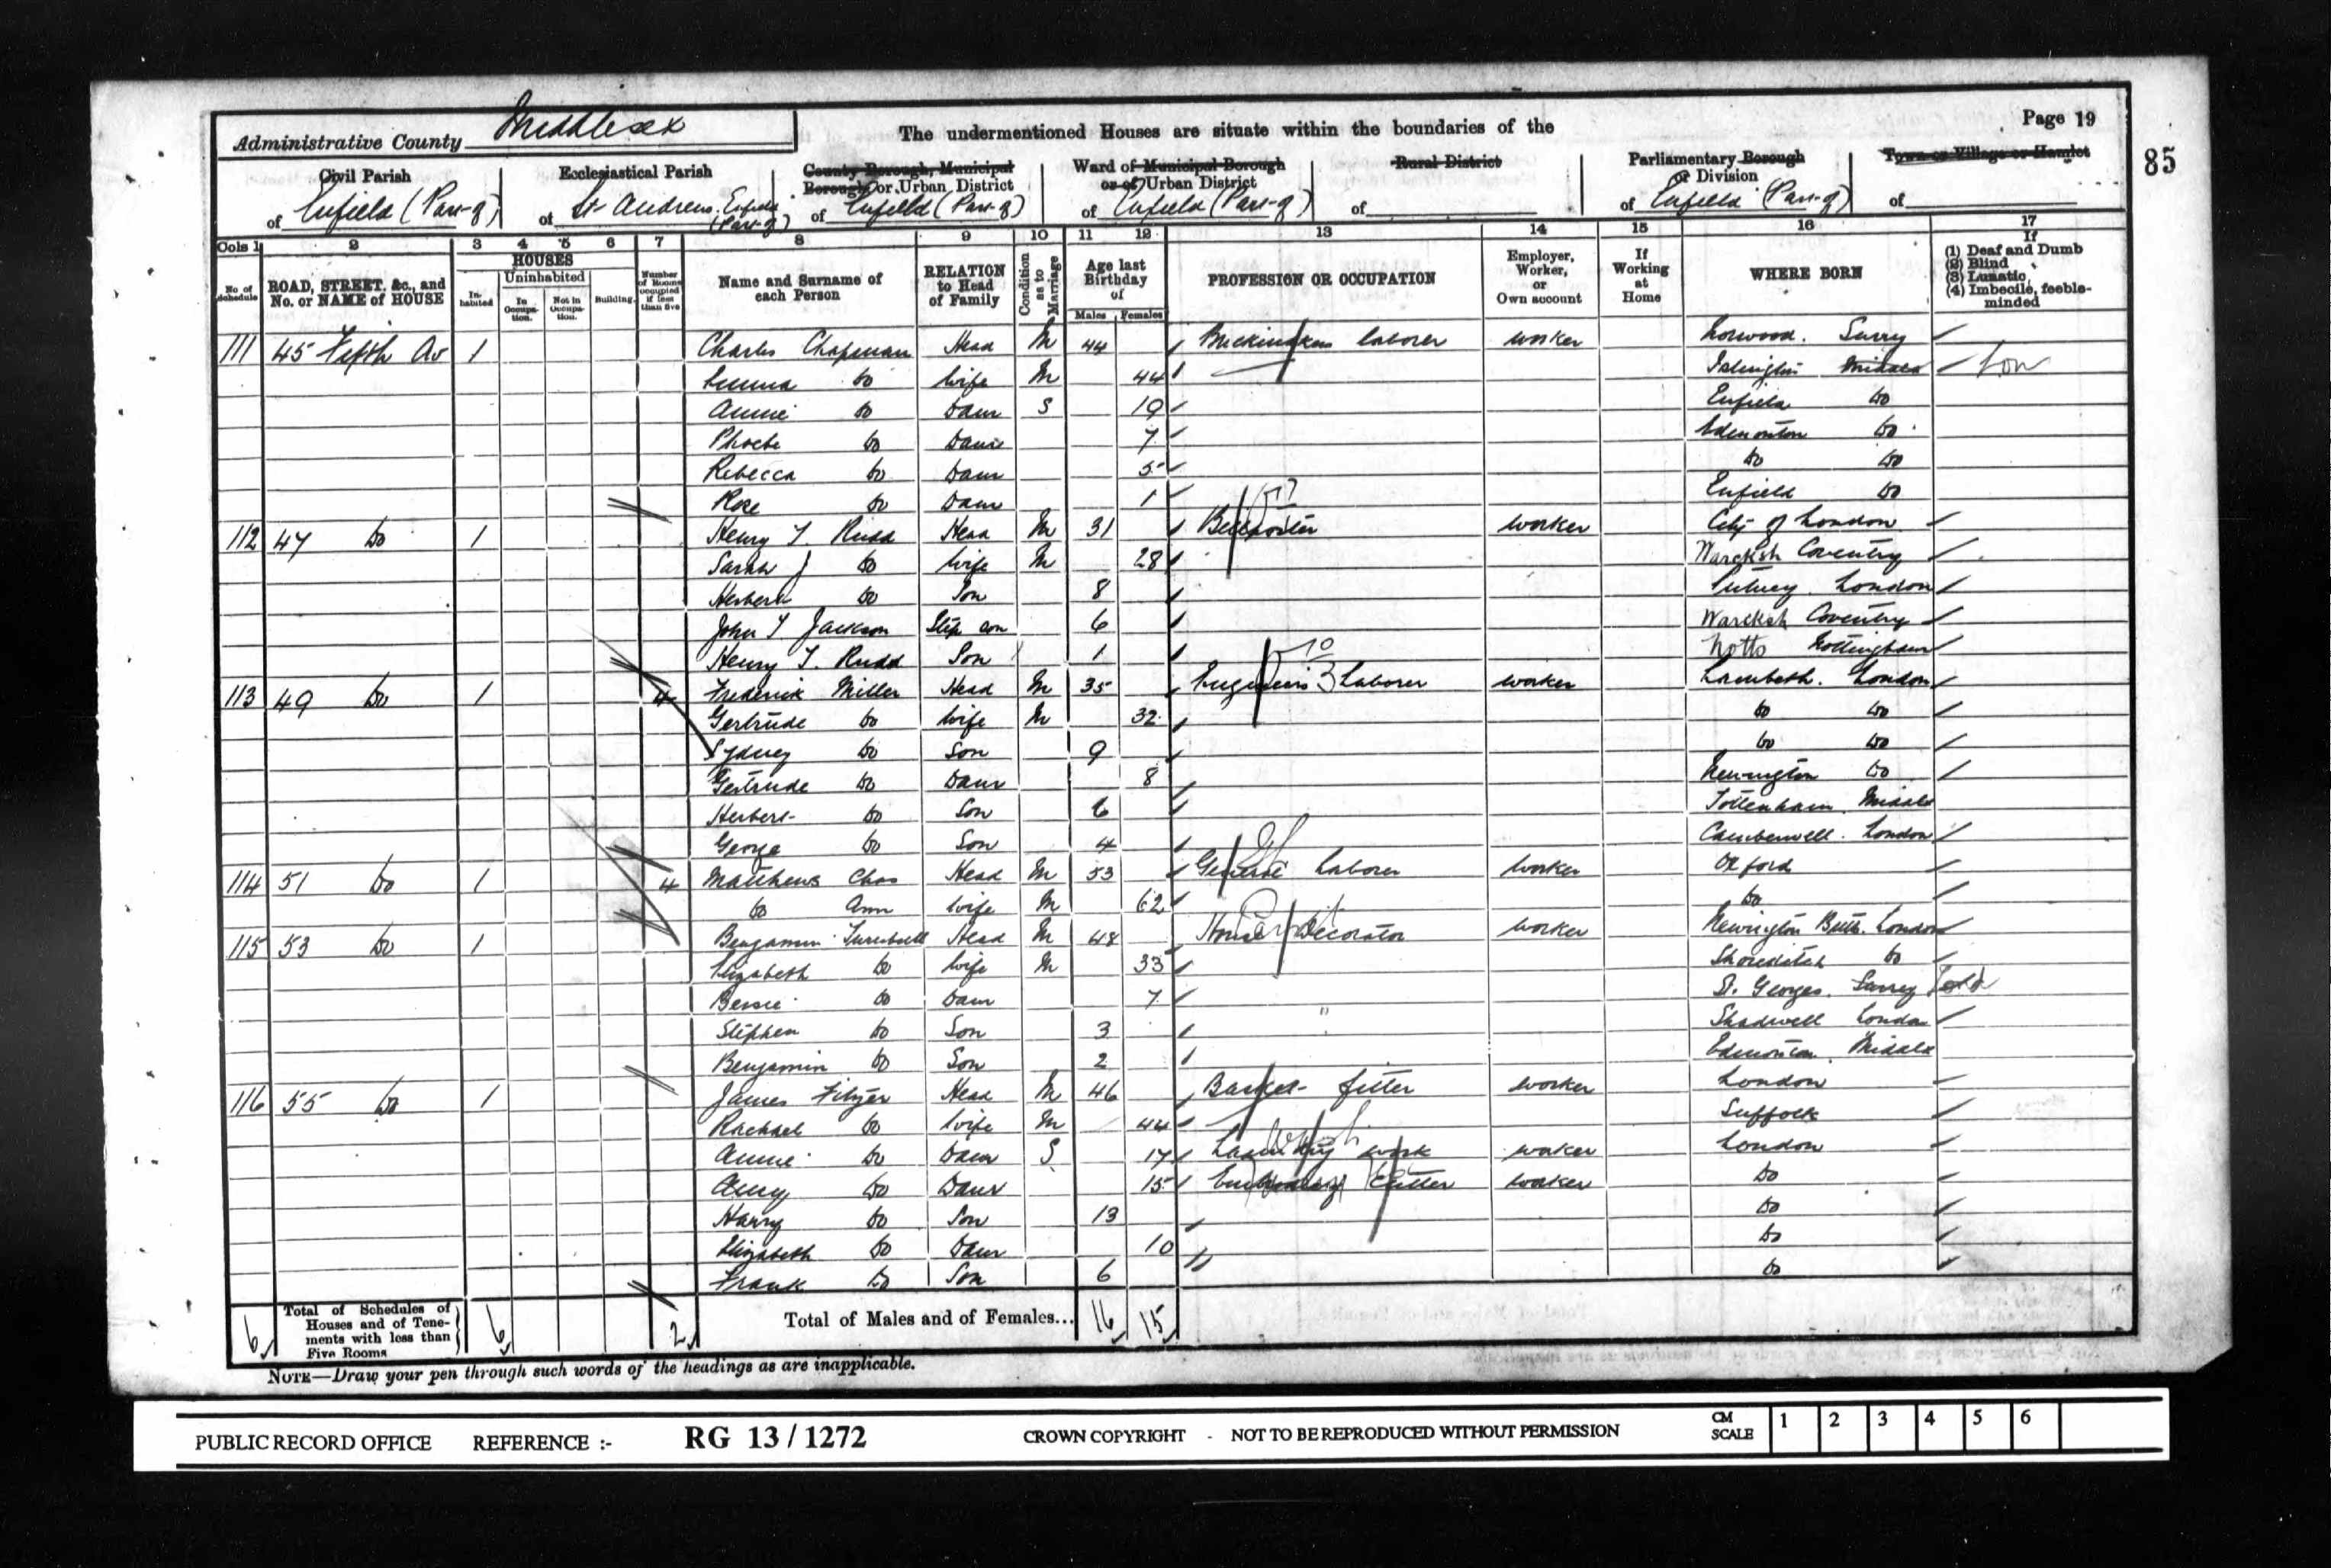 Page 19
85
Administrative County Middlesex
The undermentioned Houses are situate within the boundaries of the
Civil Parish of Enfield (Part of)
Ecclesiastical Parish of St Andrews Enfield (Part of)
County Borough, Municipal Borough or Urban District of Enfield (Part of)
Ward of Municipal Borough or of Urban District of Enfield (Part of)
Rural District of
Parliamentary Borough or Division of Enfield (Part of)
Town or Village or Hamlet of
Cols 1 2 3 4 5 6 7 8 9 10 11 12 13 14 15 16 17
No. of Schedule
ROAD, STREET, &c., and No. or NAME of HOUSE
HOUSES
Inhabited
Uninhabited
In Occupation.
Not in Occupation.
Building.
Number of Rooms occupied if less than five
Name and Surname of each Person
RELATION to Head of Family
Condition as to Marriage
Age last Birthday of
Males Females
PROFESSION OR OCCUPATION
Employer, Worker, or Own account
If Working at Home
WHERE BORN
If (1) Deaf and Dumb (2) Blind (3) Lunatic (4) Imbecile, feeble-minded
111 45 Fifth Av 1 Charles Chapman Head M 44 laborer worker Norwood. Surry
Emma Do wife M 44 Islington Middlx Lon
Annie Do Daur S 19 Enfield Do
Phoebe Do Daur 7 Edmonton Do
Rebecca Do Daur 5 Do Do
Rose Do Daur 1 Enfield Do
112 47 Do 1 Henry T. Rudd Head M 31 Billposter worker City of London
Sarah J Do wife M 28 Warcksh Coventry
Herbert Do Son 8 Putney London
John T Jackson Step son 6 Warcksh Coventry
Henry T. Rudd Son 1 Notts Nottingham
113 49 Do 1 4 Frederick Miller Head M 35 Engineers Laborer worker Lambeth. London
Gertrude Do wife M 32 Do Do
Sydney Do Son 9 Do Do
Gertrude Do Daur 8 Newington Do
Herbert Do Son 6 Tottenham Middlx
George Do Son 4 Camberwell. London
114 51 Do 1 4 Matthews Chas Head M 53 General Laborer worker Oxford
Do Ann wife M 62 Do
115 53 Do 1 Benjamin Turnbull Head M 48 House Decorator worker Newington Butts. London
Elizabeth Do wife M 33 Shoreditch Do
Bessie Do Daur 7 St. Georges. Surrey
Stephen Do Son 3 Shadwell London
Benjamin Do Son 2 Edmonton. Middlx
116 55 Do 1 James Fitzer Head M 46 Basket fitter worker London
Rachael Do wife M 44 Suffolk
Annie Do Daur S 17 Laundry work worker London
Amy Do Daur 15 Cutter worker Do
Harry Do Son 13 Do
Elizabeth Do Daur 10 Do
Frank Do Son 6 Do
6 Total of Schedules of Houses and of Tenements with less than Five Rooms 6 2 Total of Males and of Females... 16 15
NOTE—Draw your pen through such words of the headings as are inapplicable.
PUBLIC RECORD OFFICE REFERENCE :- RG 13 / 1272 CROWN COPYRIGHT - NOT TO BE REPRODUCED WITHOUT PERMISSION CM SCALE 1 2 3 4 5 6